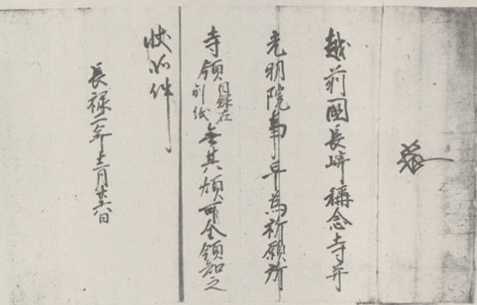 越前國長崎稱念寺并
光明院事早為祈願所
寺領目録在別紙無其煩可全領知之
状如件
長禄二年十二月廿六日